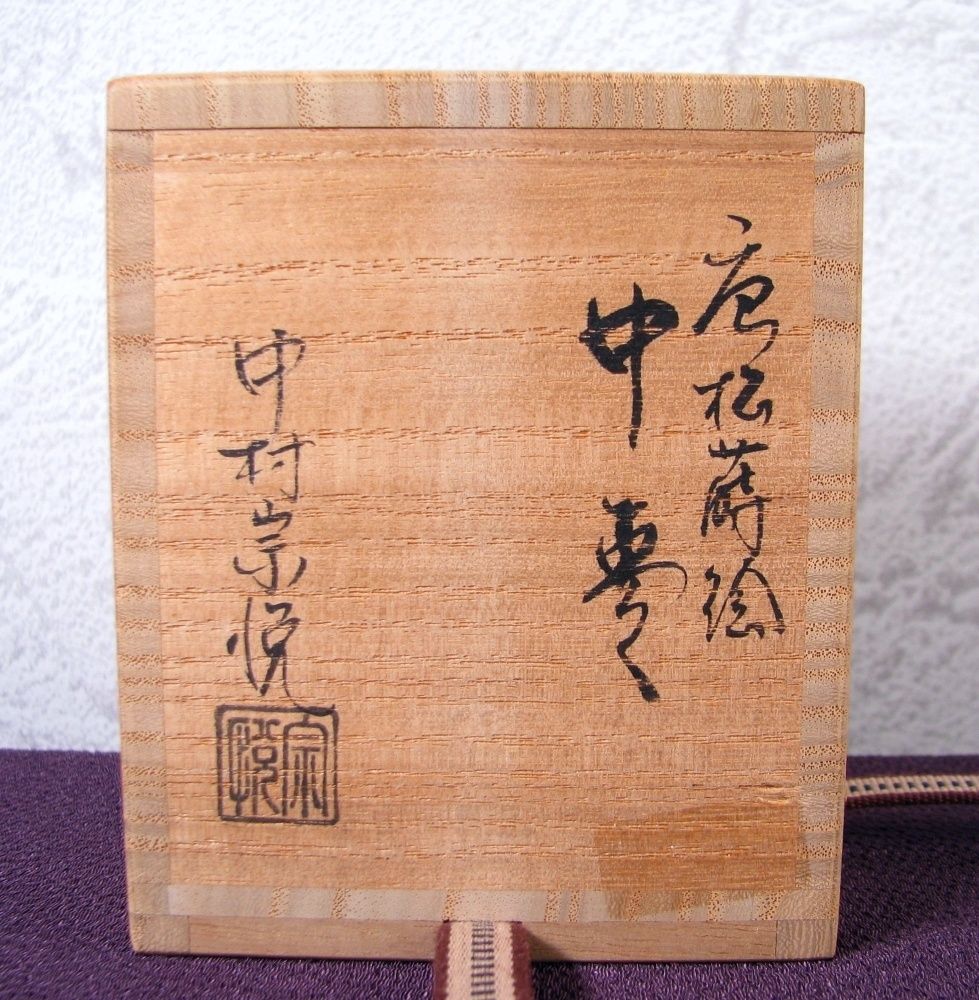 唐松蒔絵
中棗
中村宗悦
宗悦